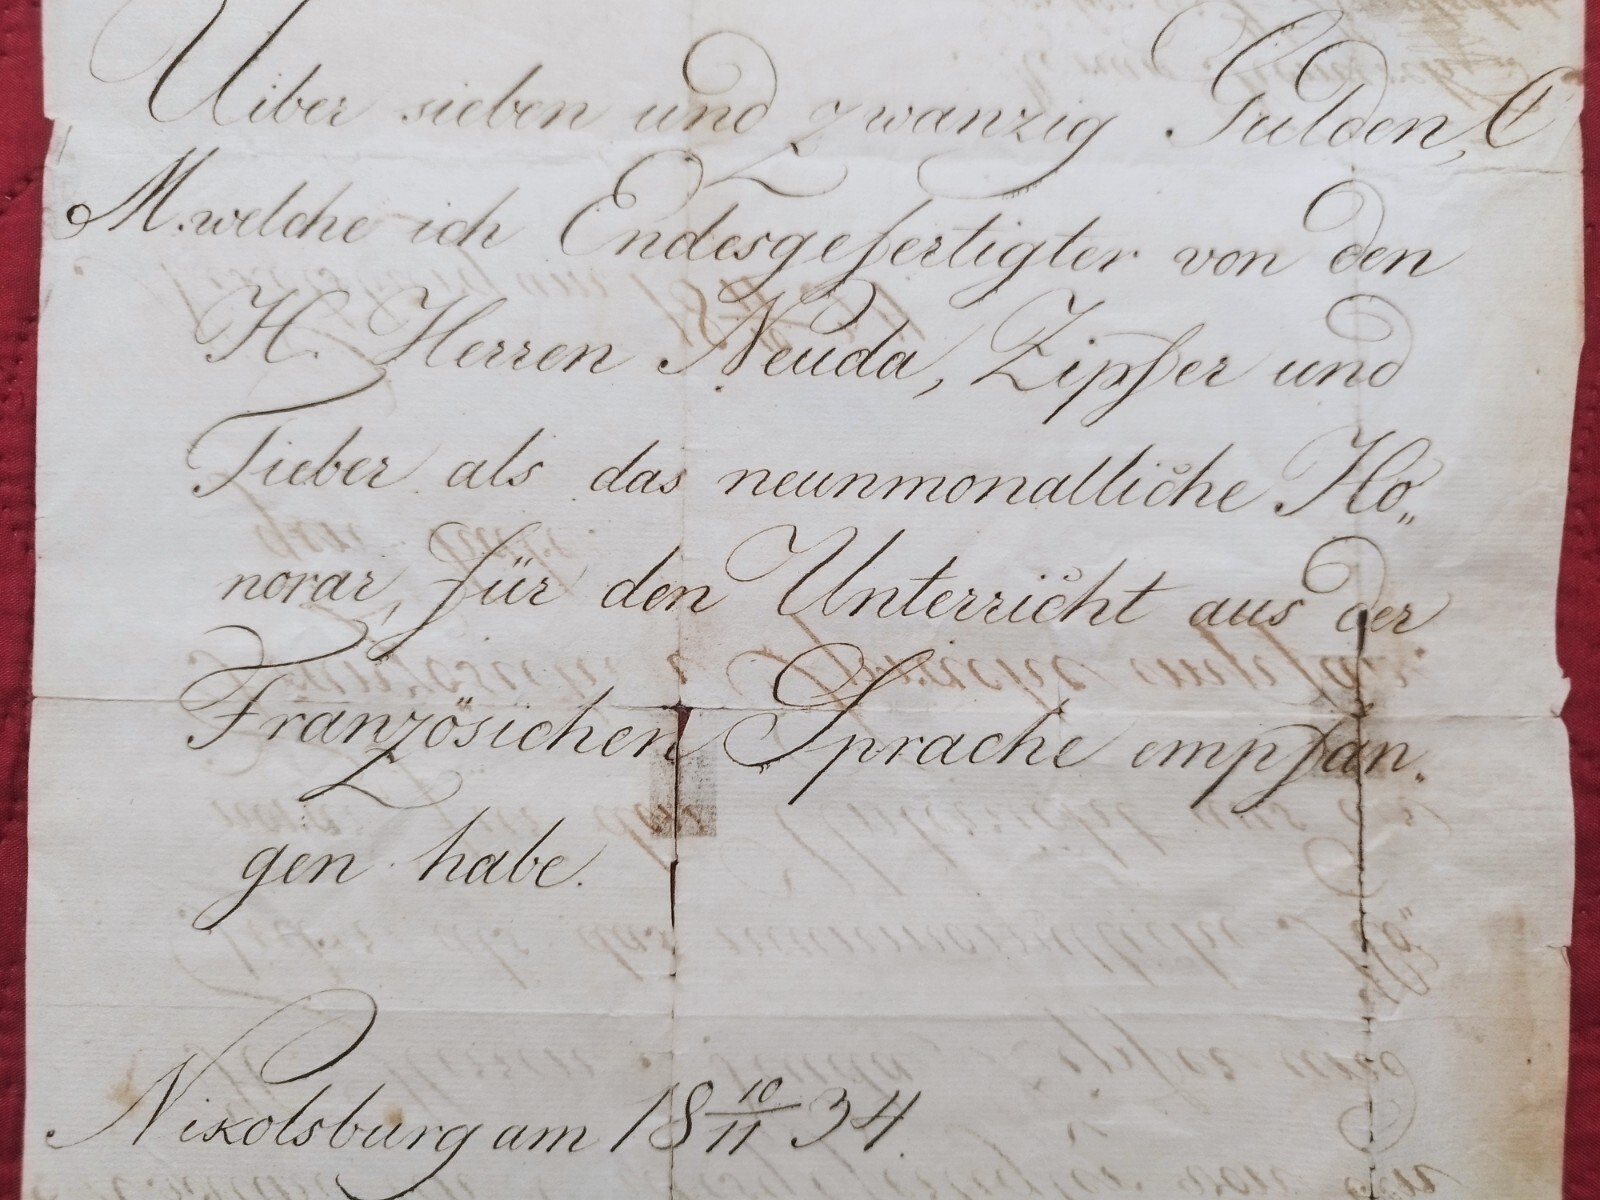 Uiber sieben und zwanzig Gulden, C
M. welche ich Endesgefertigter von den
H. Herren Neuda, Zipfer und
Tieber als das neunmonatliche Ho„
norar, für den Unterricht aus der
Französichen Sprache empfan„
gen habe.
Nikolsburg am 18 10/11 34.